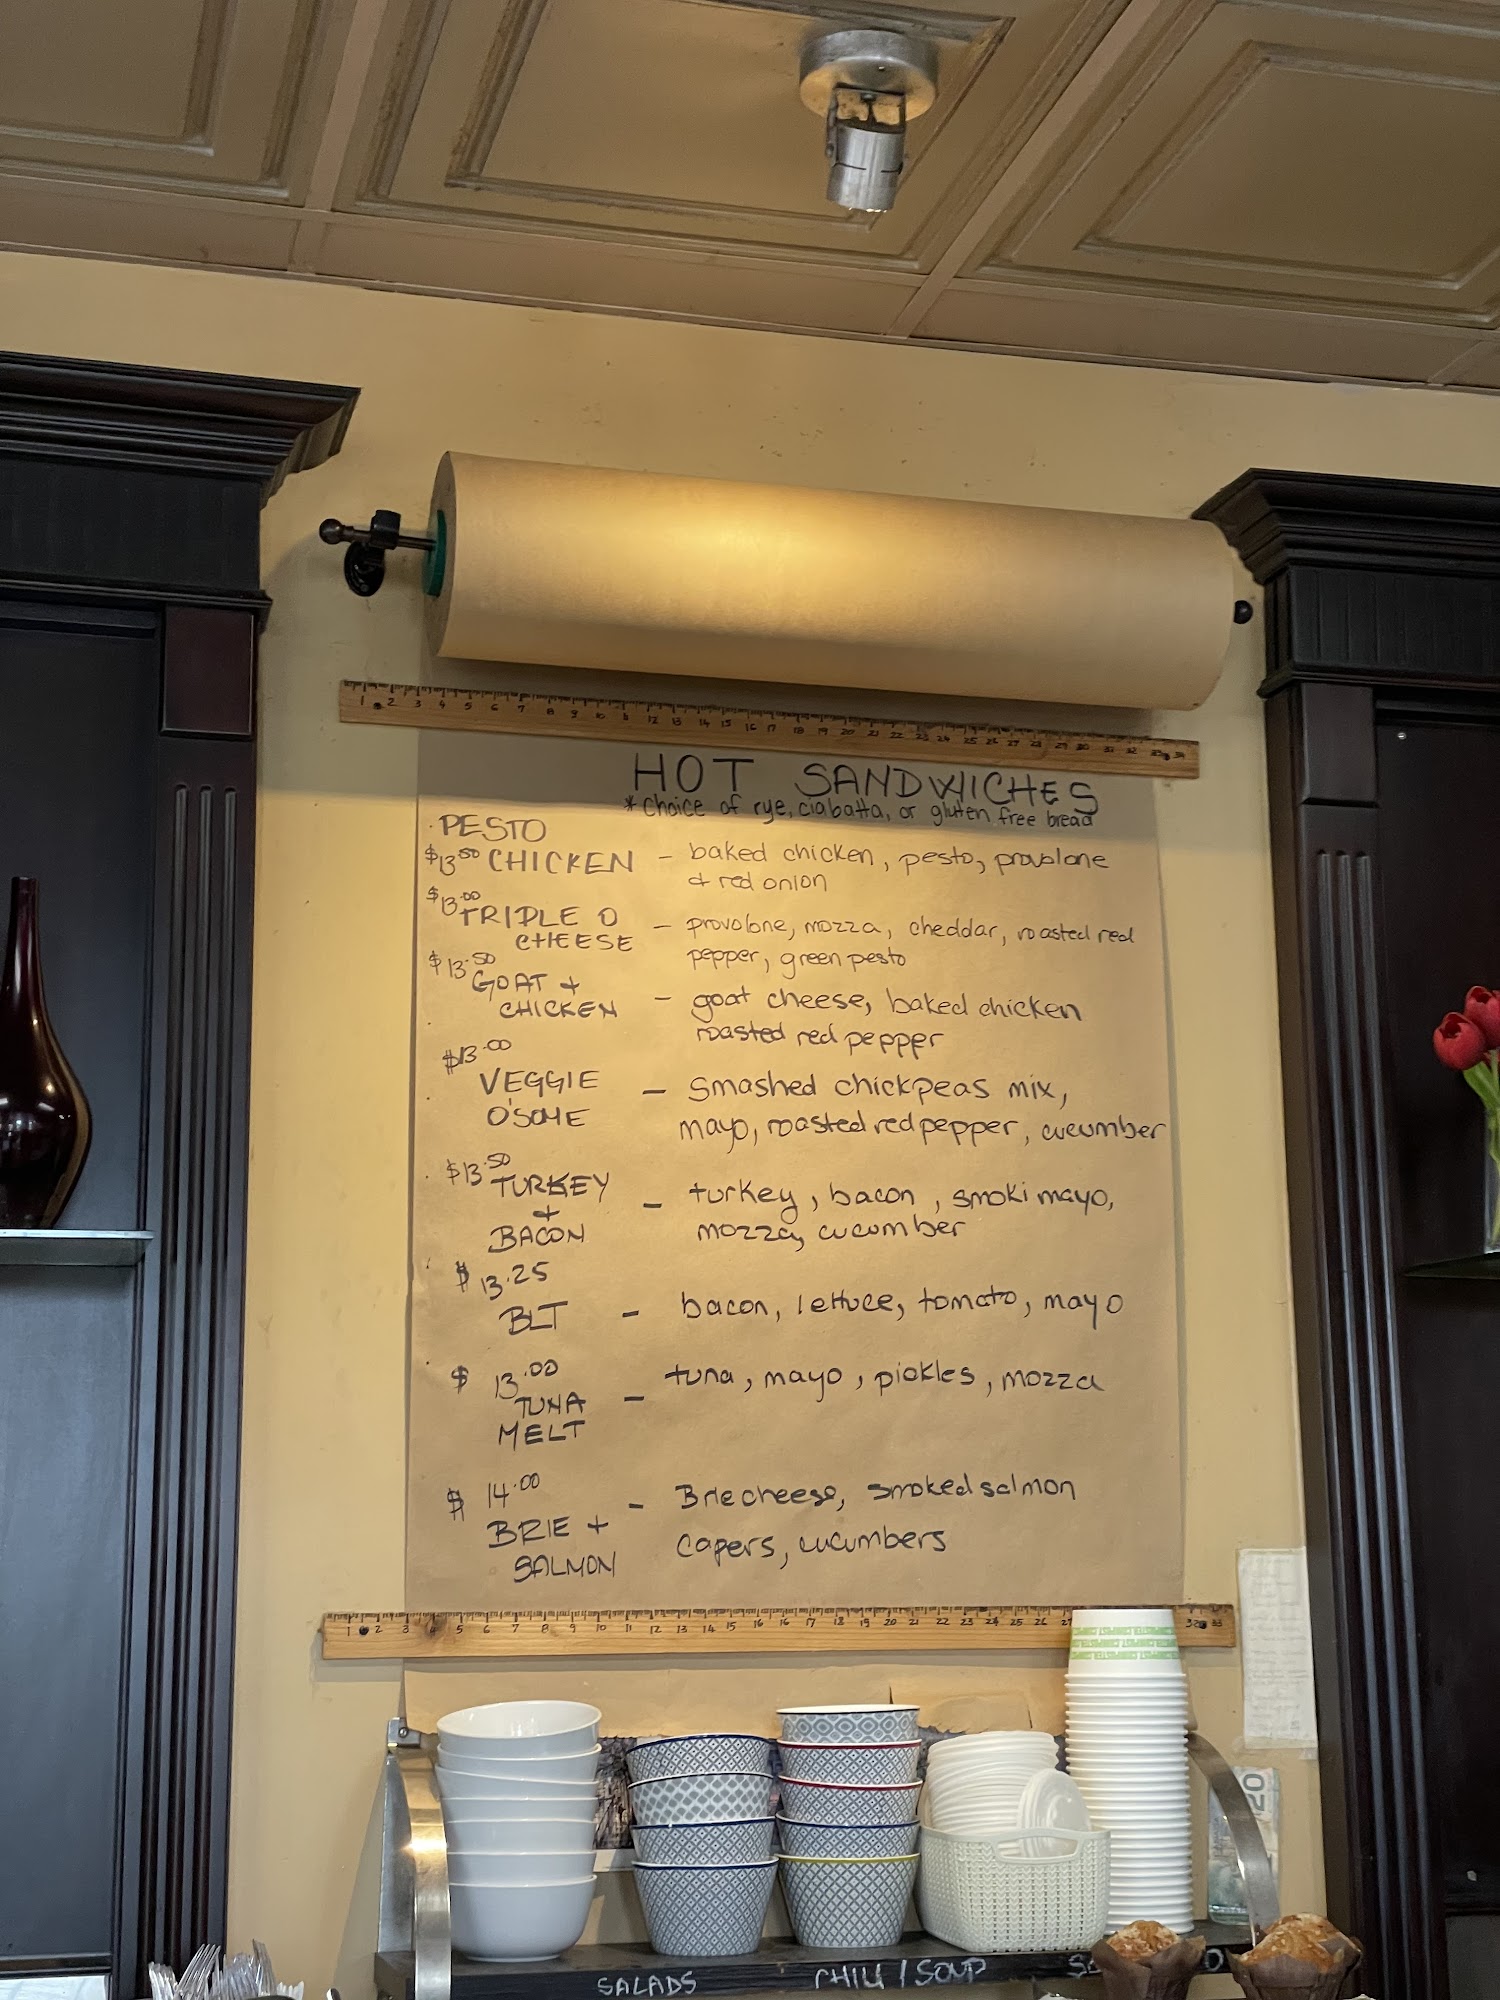 HOT SANDWICHES
*Choice of rye, ciabatta, or gluten free bread
PESTO
$13.50 CHICKEN - baked chicken, pesto, provolone
+ red onion
$13.00
TRIPLE O - provolone, mozza, cheddar, roasted red
CHEESE pepper, green pesto
$13.50
GOAT +
CHICKEN - goat cheese, baked chicken
roasted red pepper
$13.00
VEGGIE - smashed chickpeas mix,
O'SOME mayo, roasted red pepper, cucumber
$13.50
TURKEY - turkey, bacon, smoki mayo,
+ mozza, cucumber
BACON
$13.25
BLT - bacon, lettuce, tomato, mayo
$13.00 tuna, mayo, pickles, mozza
TUNA -
MELT
$14.00 - Brie cheese, smoked salmon
BRIE + capers, cucumbers
SALMON
SALADS CHILI / SOUP
20